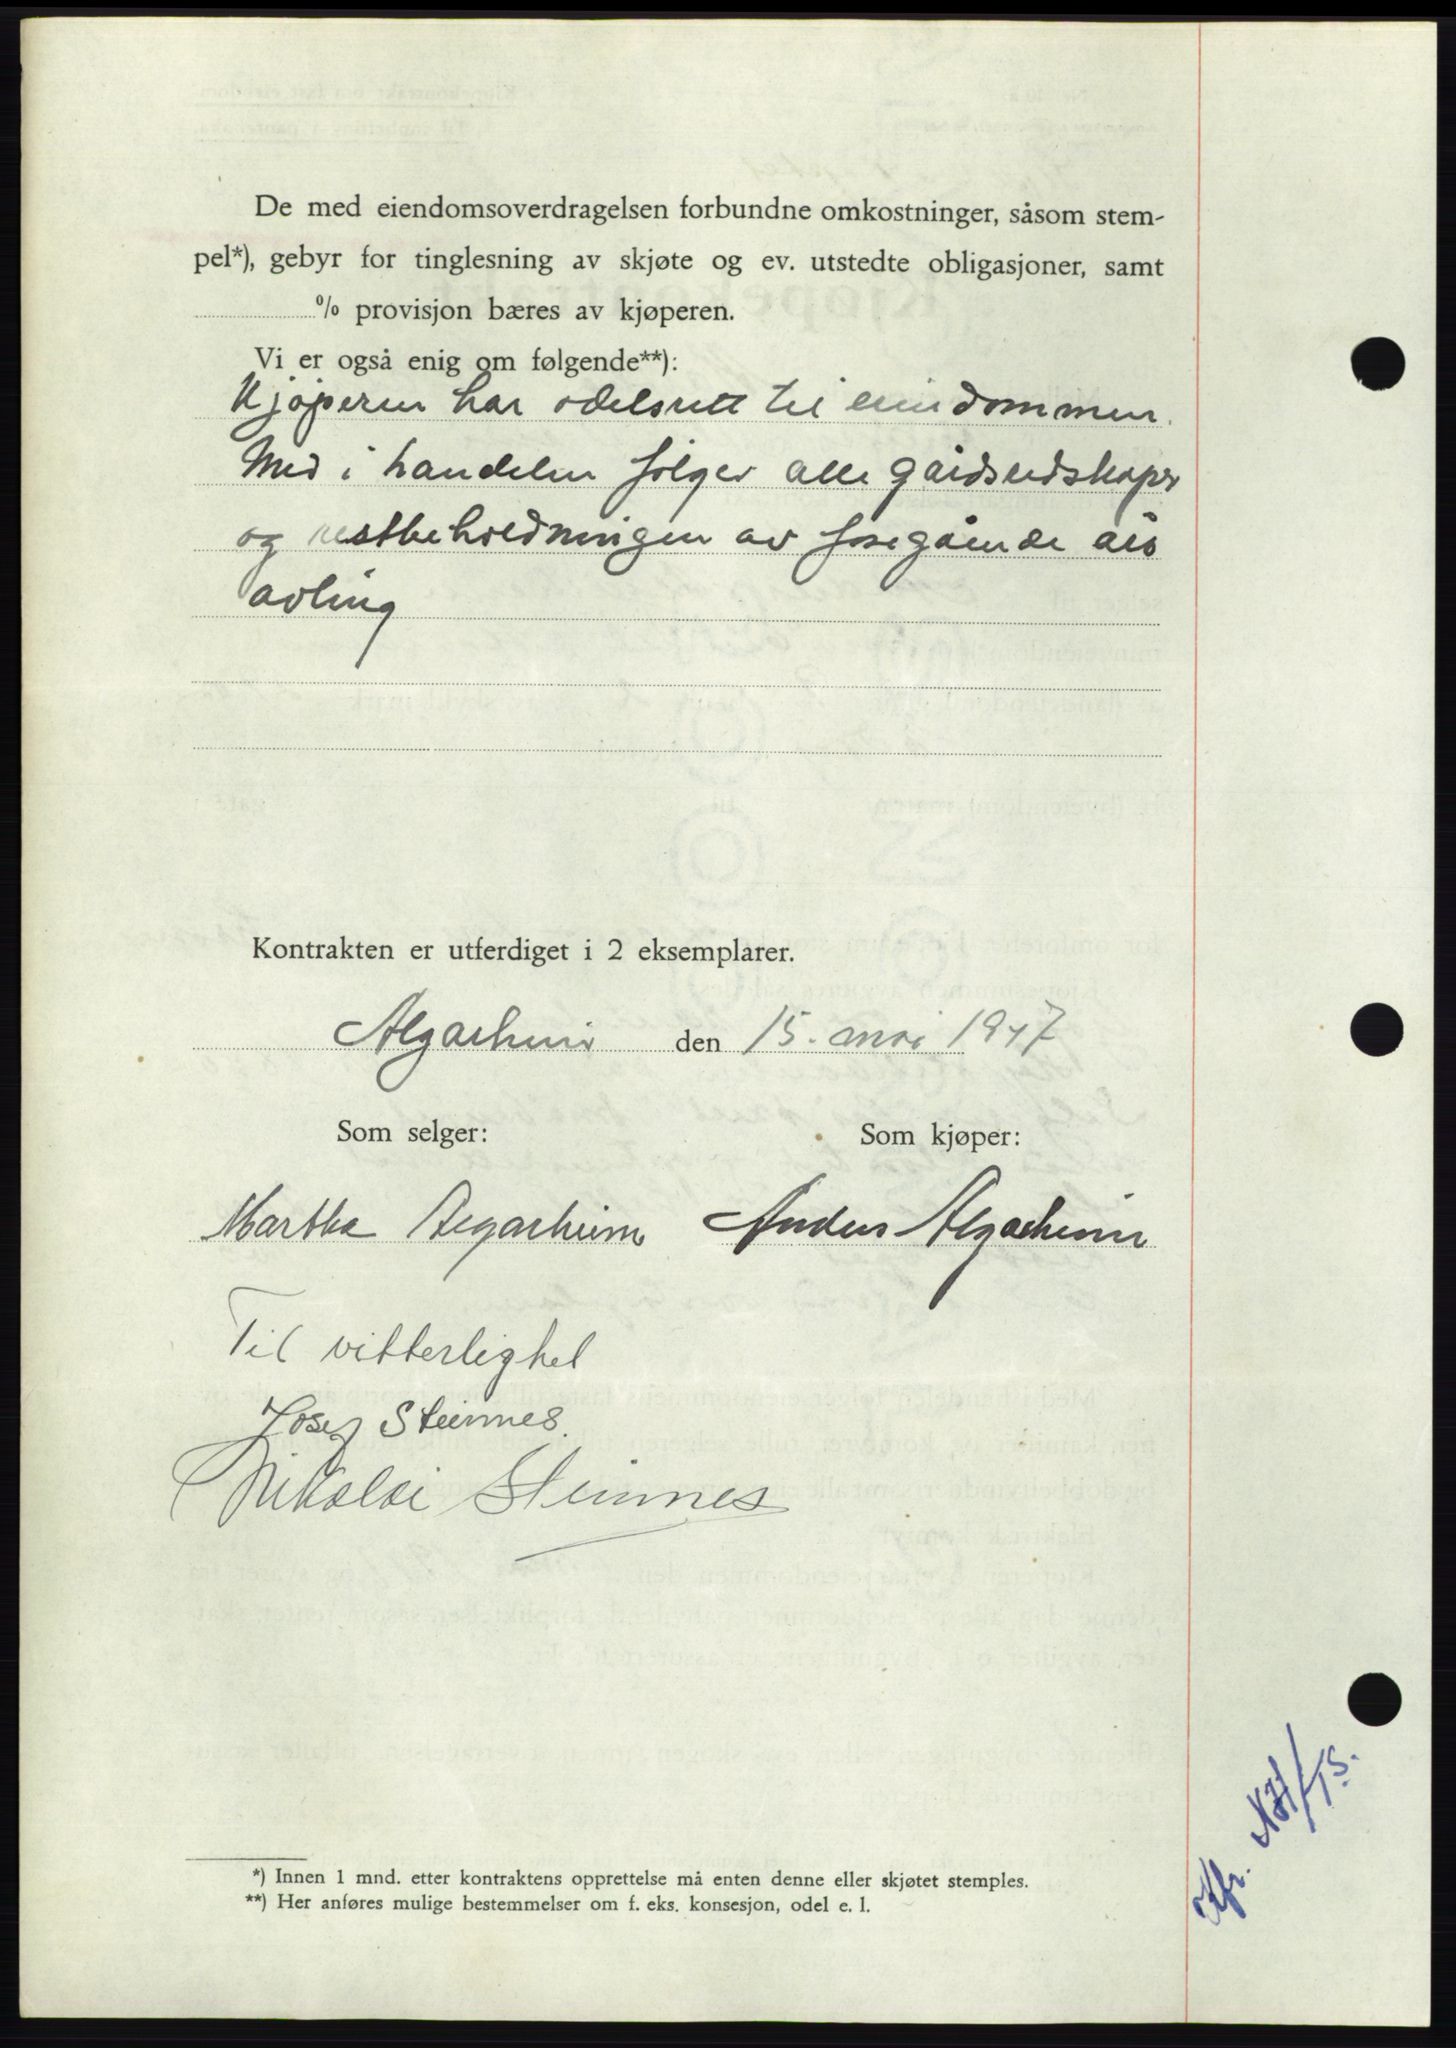 De med eiendomsoverdragelsen forbundne omkostninger, såsom stem-
pel*), gebyr for tinglesning av skjøte og ev. utstedte obligasjoner, samt
% provisjon bæres av kjøperen.
Vi er også enig om følgende**):
Kjøperen har odelsrett til eiendommen.
Med i handelen følger alle gårdsredskaper
og restbeholdningen av foregående års
avling
Kontrakten er utferdiget i 2 eksemplarer.
Algarheim den 15. mai 1947
Som selger: Som kjøper:
Martha Algarheim Anders Algarheim
Til vitterlighet
Josef Steinnes.
Nikolai Steinnes
*) Innen 1 mnd. etter kontraktens opprettelse må enten denne eller skjøtet stemples.
**) Her anføres mulige bestemmelser om f. eks. konsesjon, odel e. l.